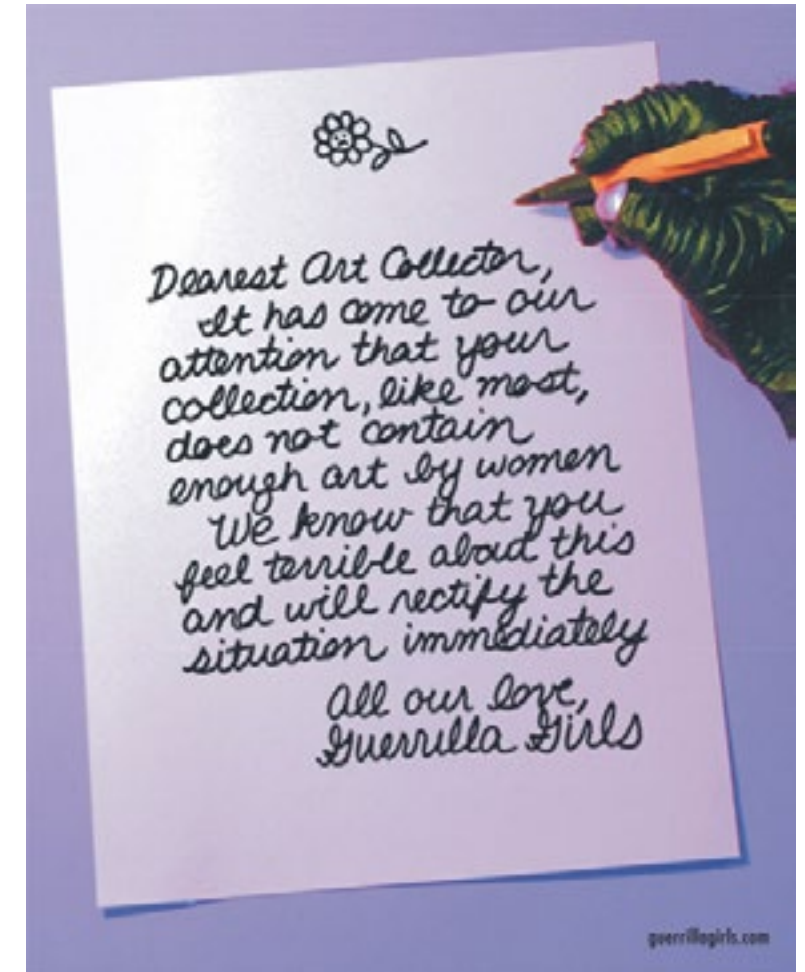 Dearest Art Collector,
It has come to our
attention that your
collection, like most,
does not contain
enough art by women
We know that you
feel terrible about this
and will rectify the
situation immediately
All our love,
Guerrilla Girls
guerrillagirls.com